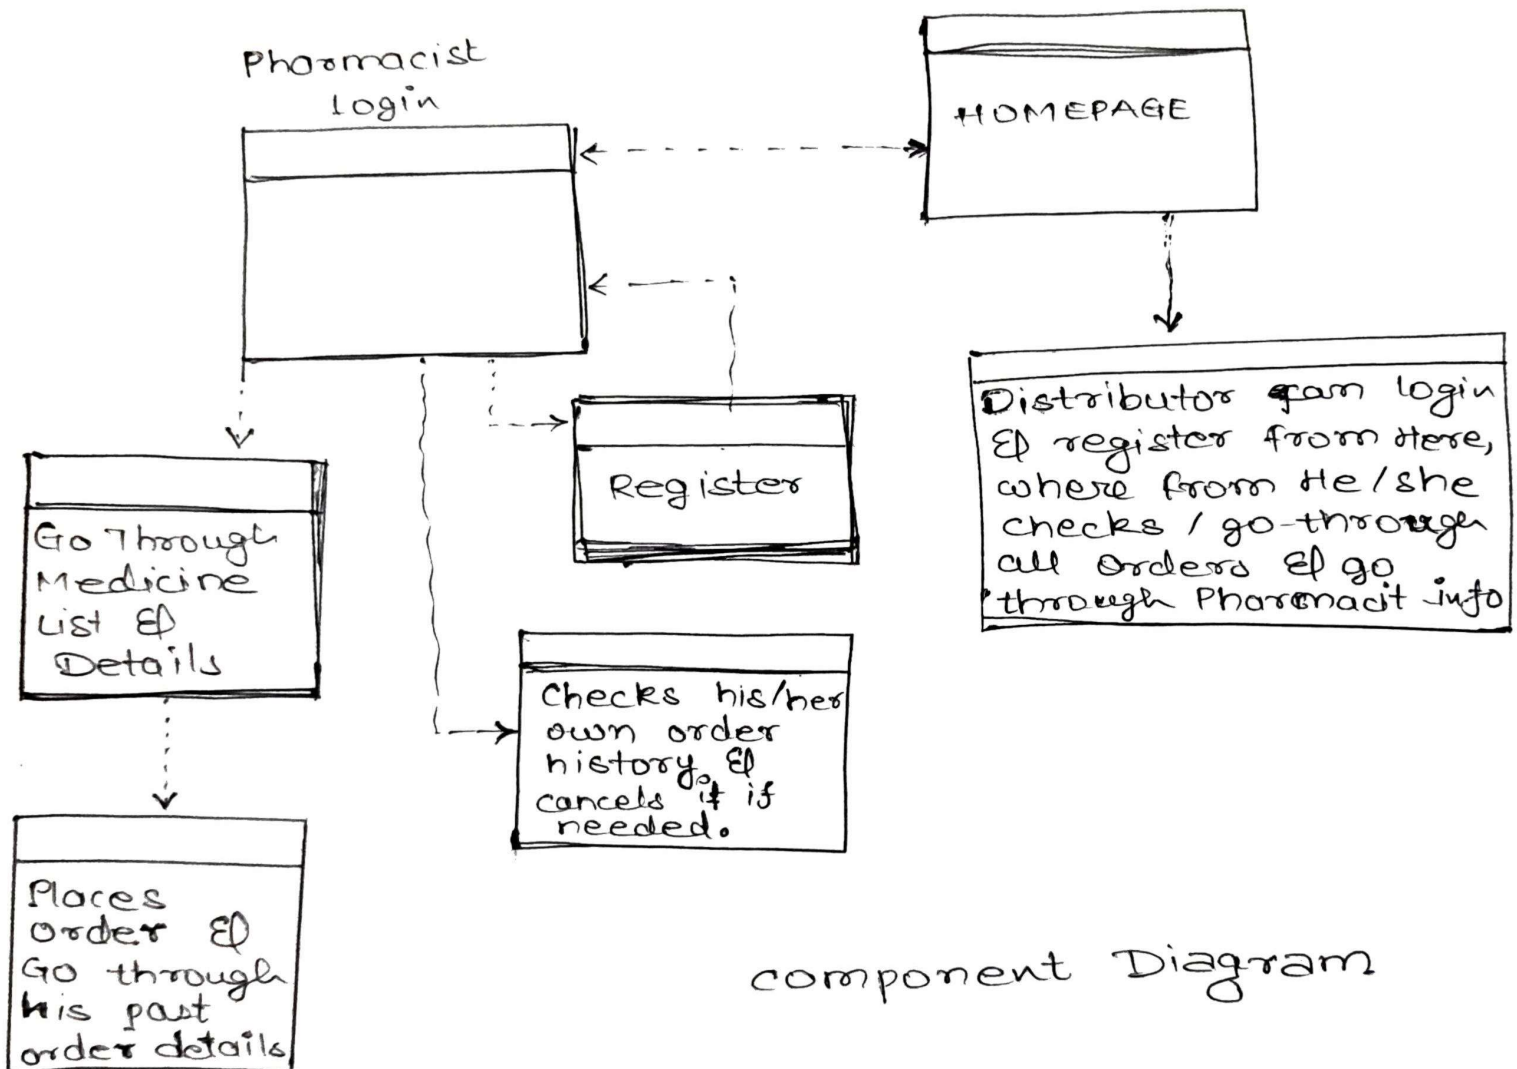 Pharmacist
Login
HOMEPAGE
Distributor can login
& register from Here,
where from He/she
checks / go-through
all orders & go
through Pharmacit info
Register
Go Through
Medicine
List &
Details
Checks his/her
own order
history, &
cancels it if
needed.
Places
order &
Go through
his past
order details
component Diagram